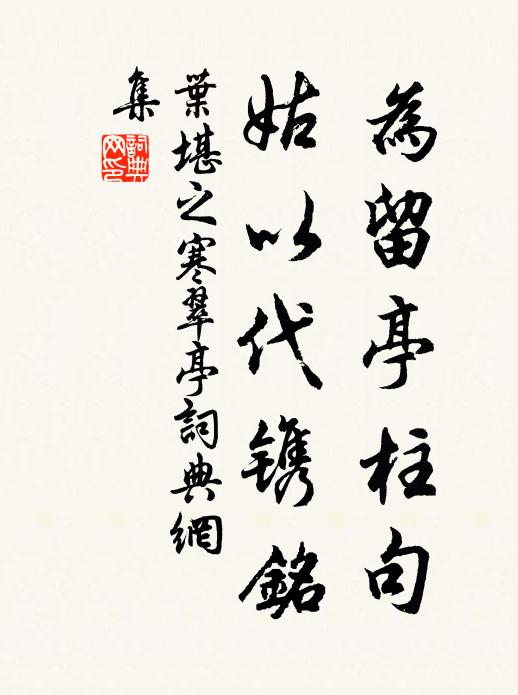 為留亭柱句
姑以代鐫銘
葉堪之寒翠亭詞典網
集
詞典
網印